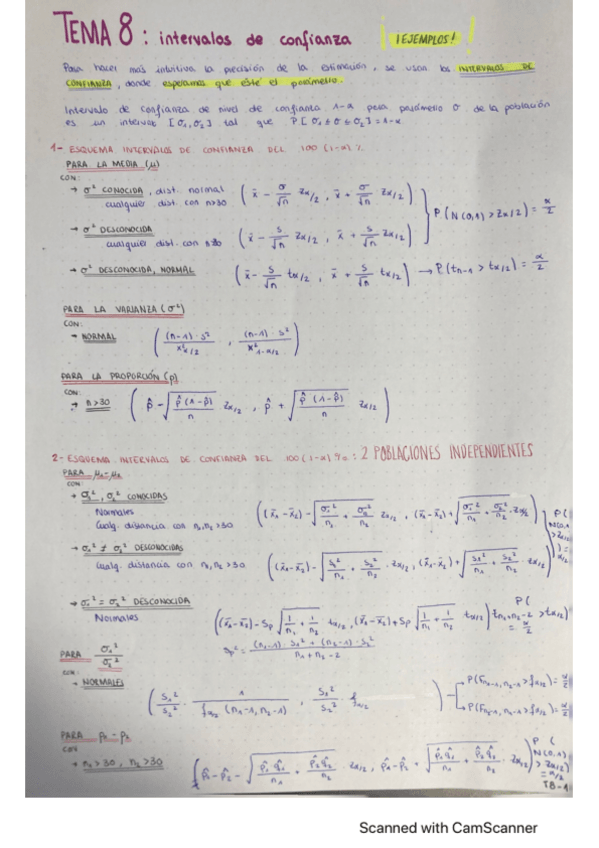 TEMA 8 : intervalos de confianza ¡EJEMPLOS!
Para hacer más intuitiva la precisión de la estimación, se usan los INTERVALOS DE
CONFIANZA, donde esperamos que esté el parámetro.
Intervalo de confianza de nivel de confianza 1-α para parámetro σ de la población
es un intervalo [σ1, σ2] tal que P[σ1 ≤ σ ≤ σ2] = 1-α.
1- ESQUEMA INTERVALOS DE CONFIANZA DEL 100 (1-α) %
PARA LA MEDIA (μ)
CON:
→ σ² CONOCIDA, dist. normal
cualquier dist. con n>30
(x̄ - σ/√n zα/2 , x̄ + σ/√n zα/2)
→ σ² DESCONOCIDA
cualquier dist. con n≥30
(x̄ - s/√n zα/2 , x̄ + s/√n zα/2)
P(N(0,1) > zα/2) = α/2
→ σ² DESCONOCIDA, NORMAL (x̄ - s/√n tα/2 , x̄ + s/√n tα/2) → P(tn-1 > tα/2) = α/2
PARA LA VARIANZA (σ²)
CON:
→ NORMAL ((n-1)·s²/χ²α/2 , (n-1)·s²/χ²1-α/2)
PARA LA PROPORCIÓN (p)
CON:
→ n>30 (p̂ - √(p̂(1-p̂)/n) zα/2 , p̂ + √(p̂(1-p̂)/n) zα/2)
2- ESQUEMA INTERVALOS DE CONFIANZA DEL 100 (1-α) % : 2 POBLACIONES INDEPENDIENTES
PARA μ1-μ2
CON:
→ σ1², σ2² CONOCIDAS
Normales
Cualq. distancia con n1,n2>30
((x̄1-x̄2) - √(σ1²/n1 + σ2²/n2) zα/2 , (x̄1-x̄2) + √(σ1²/n1 + σ2²/n2) · zα/2)
→ σ1² ≠ σ2² DESCONOCIDAS
Cualq. distancia con n1,n2>30
((x̄1-x̄2) - √(s1²/n1 + s2²/n2) · zα/2 , (x̄1-x̄2) + √(s1²/n1 + s2²/n2) · zα/2)
P(N(0,1) > zα/2) = α/2
→ σ1² = σ2² DESCONOCIDA
Normales
((x̄1-x̄2) - Sp √(1/n1 + 1/n2) tα/2 , (x̄1-x̄2) + Sp √(1/n1 + 1/n2) tα/2) P(tn1+n2-2 > tα/2) = α/2
Sp² = (n1-1)·s1² + (n2-1)·s2² / n1+n2-2
PARA σ1²/σ2²
CON:
→ NORMALES
(s1²/s2² · 1/fα/2 (n1-1, n2-1) , s1²/s2² · fα/2)
→ P(Fn1-1, n2-1 > fα/2) = α/2
→ P(Fn2-1, n1-1 > fα/2) = α/2
PARA p1-p2
CON
→ n1>30, n2>30
(p̂1-p̂2 - √(p̂1q̂1/n1 + p̂2q̂2/n2) · zα/2 , p̂1-p̂2 + √(p̂1q̂1/n1 + p̂2q̂2/n2) · zα/2)
P(N(0,1) > zα/2) = α/2
T8-1
Scanned with CamScanner